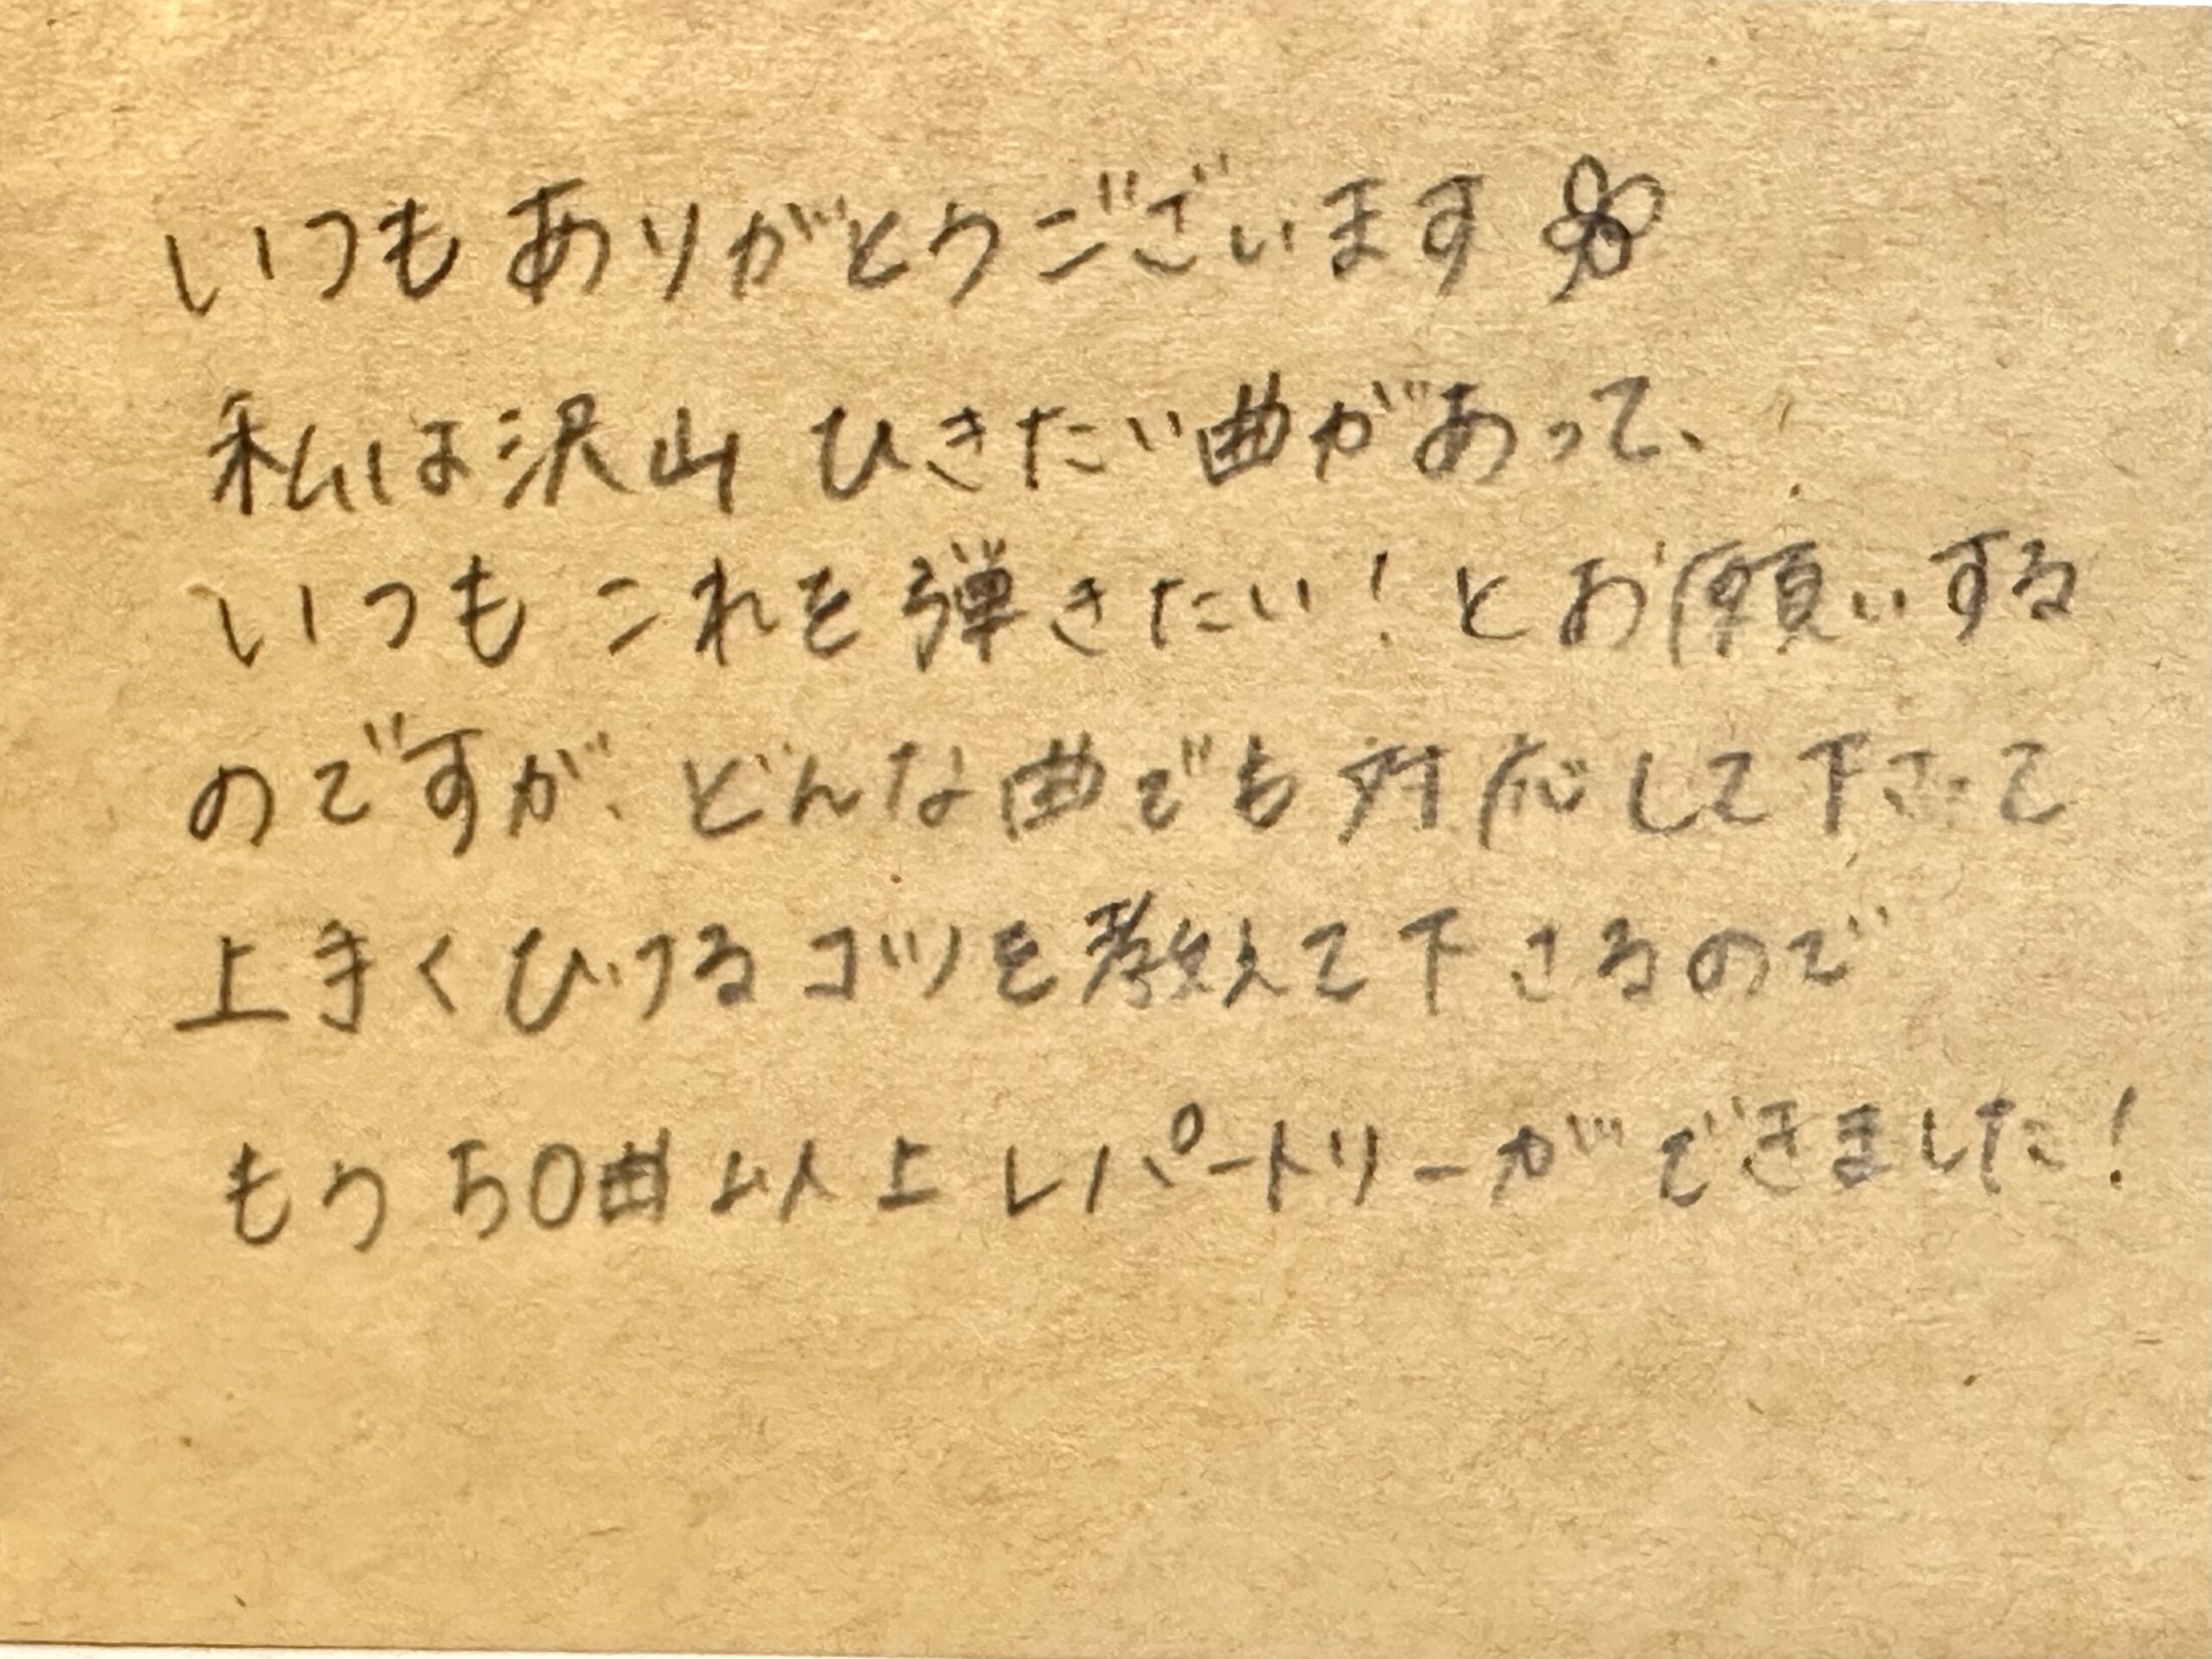 いつもありがとうございます
私は沢山ひきたい曲があって、
いつもこれを弾きたい！とお願いする
のですが、どんな曲でも対応して下さって
上手くひけるコツを教えて下さるので
もう50曲以上レパートリーができました！